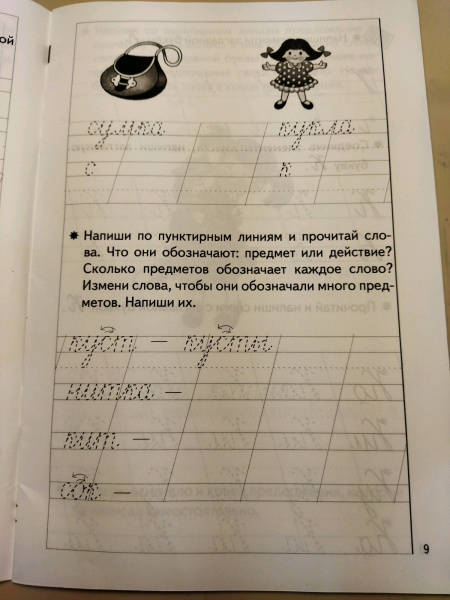 ой
сумка кукла
с к
Напиши по пунктирным линиям и прочитай сло-
ва. Что они обозначают: предмет или действие?
Сколько предметов обозначает каждое слово?
Измени слова, чтобы они обозначали много пред-
метов. Напиши их.
куст — кусты
нитка —
кит —
—
9